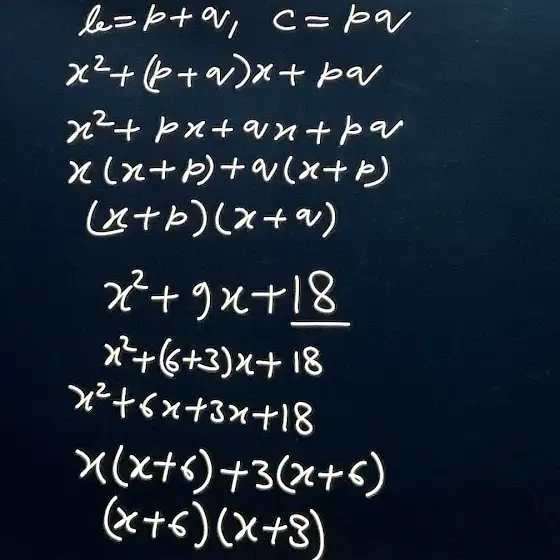 b=p+q, c=pq
x²+(p+q)x+pq
x²+px+qx+pq
x(x+p)+q(x+p)
(x+p)(x+q)
x²+9x+18
x²+(6+3)x+18
x²+6x+3x+18
x(x+6)+3(x+6)
(x+6)(x+3)